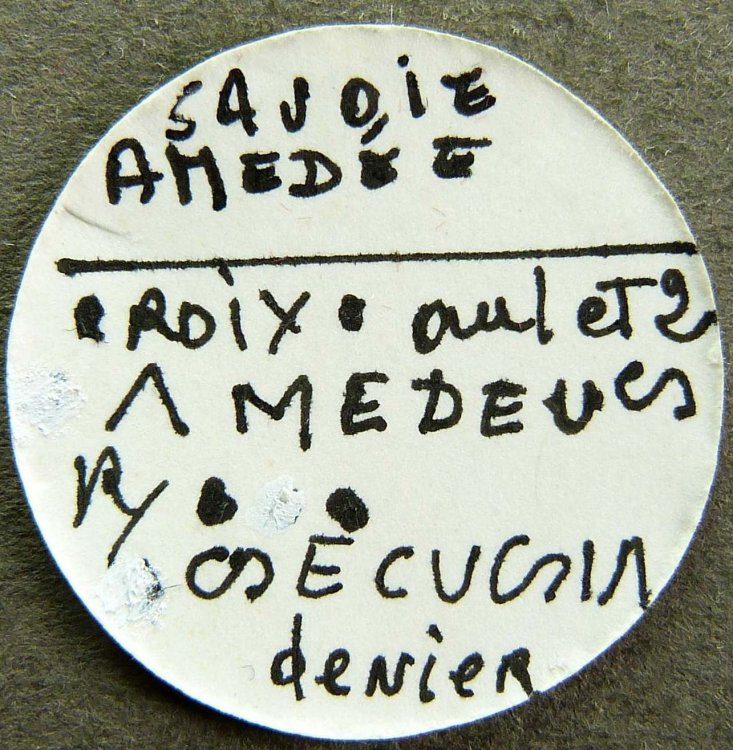 SAVOIE
AMEDÉE
CROIX • au 1 et 2
AMEDEUS
R/ • •
SECUSIA
denier